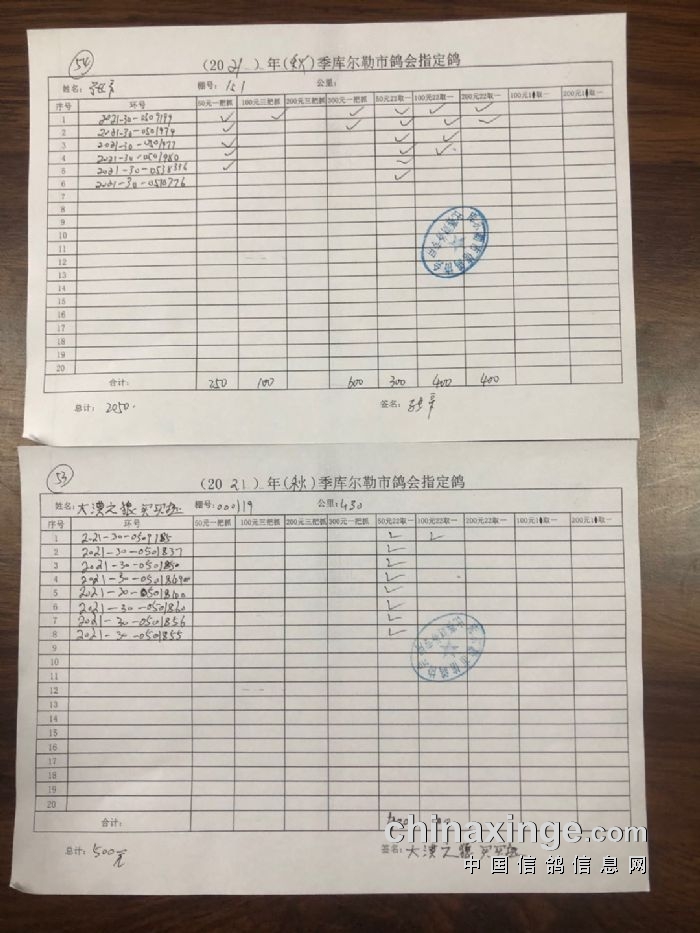 54
(2021)年(秋)季库尔勒市鸽会指定鸽
姓名: 棚号: 151 公里:
序号 环号 50元一把抓 100元三把抓 200元三把抓 300元一把抓 50元22取一 100元22取一 200元22取一 100元1取一 200元1取一
1 2021-30-0509199
2 2021-30-0501979
3 2021-30-0501977
4 2021-30-0501980
5 2021-30-0538336
6 2021-30-0510776
7
8
9
10
11
12
13
14
15
16
17
18
19
20
合计: 250 100 600 300 400 400
总计: 2050. 签名:
53
(2021)年(秋)季库尔勒市鸽会指定鸽
姓名: 大漠之狼 棚号: 000119 公里: 430
序号 环号 50元一把抓 100元三把抓 200元三把抓 300元一把抓 50元22取一 100元22取一 200元22取一
1
2 2021-30-0501837
3 2021-30-0501850
4
5
6 2021-30-0501860
7 2021-30-0501856
8 2021-30-0501855
9
10
11
12
13
14
15
16
17
18
19
20
合计:
总计: 500元 签名: 大漠之狼
chinaxinge.com
中国信鸽信息网